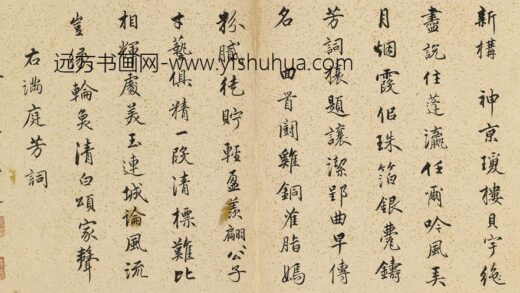 新構 神京瓊樓貝宇絶
盡説住蓬瀛任爾吟風弄
月烟霞侣珠箔銀甍鑄
芳詞猿題讓潔郢曲早傳
名 回首鬪雞銅雀脂嫣
粉膩徒貯輕盈羡翩翩公子
才藝俱精一段清標難比
相輝處美玉連城論風流
豈羡輪奂清白頌家聲
右滿庭芳詞
远方书画网-www.yfshuhua.com